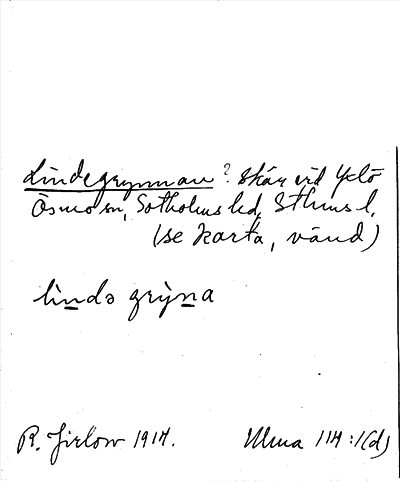 Lindegrynnan? Skär vid Yxlö
Ösmo sn, Sotholms hd, Sthms l.
(se karta, vänd)
lìndə grỳna
R. Jirlow 1917. Ulma 114:1(d)